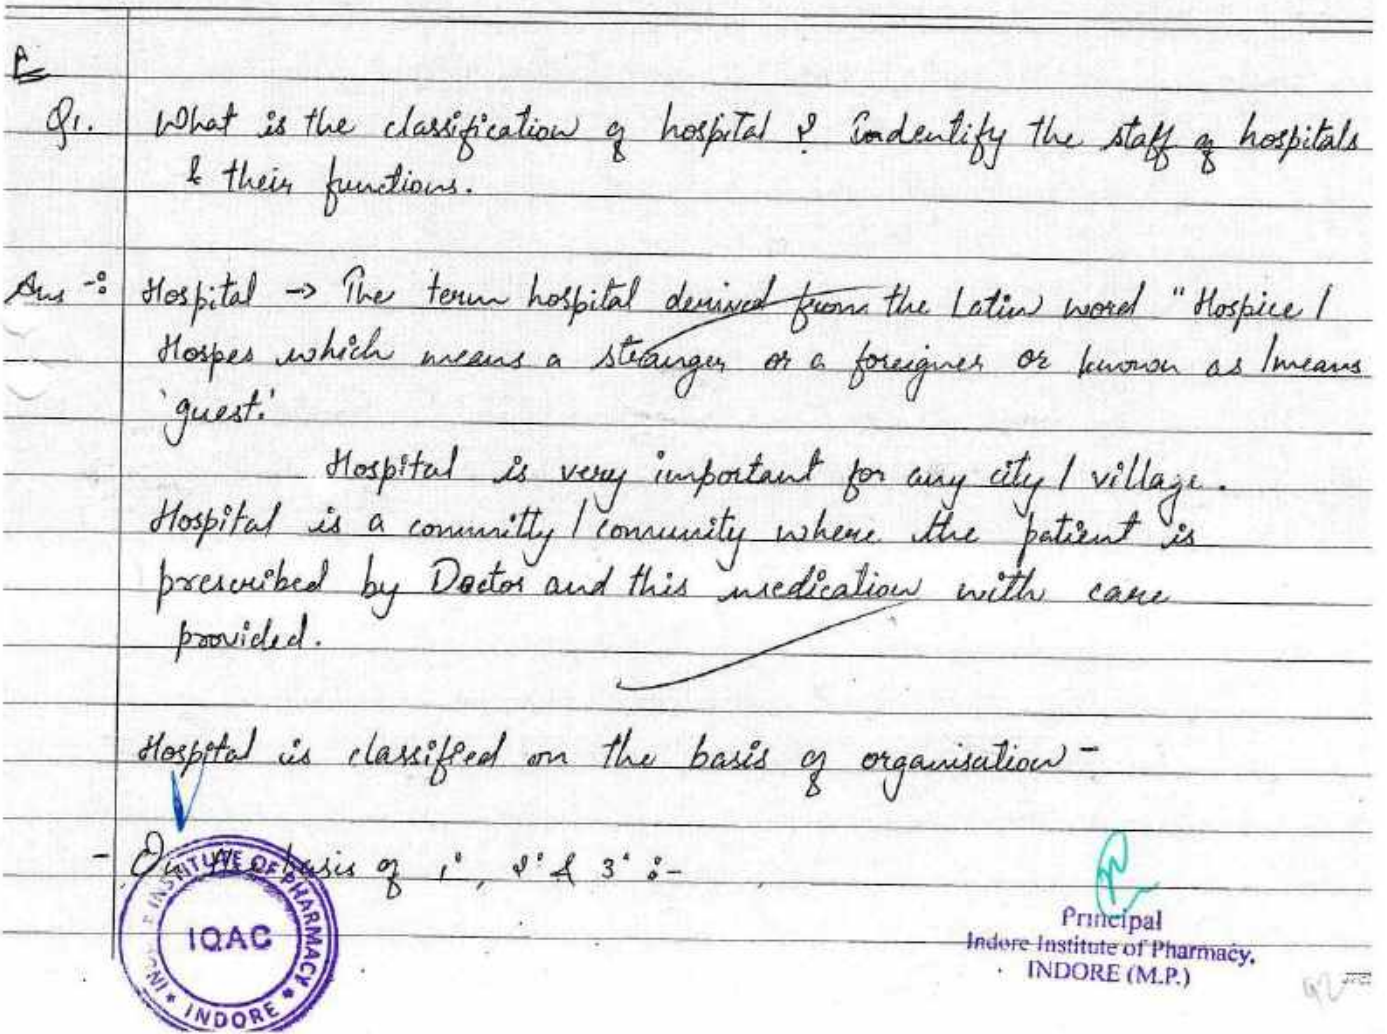 Q1. What is the classification of hospital ? Indentify the staff of hospitals
& their functions.
Ans -: Hospital → The term hospital derived from the Latin word "Hospice /
Hospes which means a stranger or a foreigner or known as / means
'guest.'
Hospital is very important for any city / village.
Hospital is a committy / comunity where the patient is
prescribed by Doctor and this medication with care
provided.
Hospital is classified on the basis of organisation -
- On the basis of 1°, 2° & 3° :-
INSTITUTE OF PHARMACY
IQAC
INDORE
Principal
Indore Institute of Pharmacy,
INDORE (M.P.)